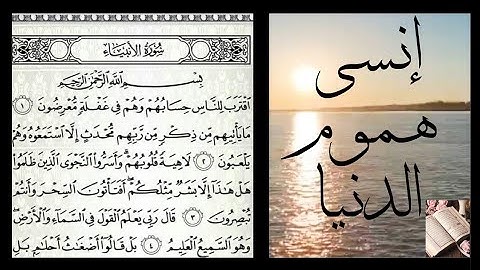 سُورَةُ الأَنبِيَاءِ
بِسْمِ اللَّهِ الرَّحْمَٰنِ الرَّحِيمِ
اقْتَرَبَ لِلنَّاسِ حِسَابُهُمْ وَهُمْ فِي غَفْلَةٍ مُّعْرِضُونَ ١
مَا يَأْتِيهِم مِّن ذِكْرٍ مِّن رَّبِّهِم مُّحْدَثٍ إِلَّا اسْتَمَعُوهُ وَهُمْ
يَلْعَبُونَ ٢ لَاهِيَةً قُلُوبُهُمْ وَأَسَرُّوا النَّجْوَى الَّذِينَ ظَلَمُوا
هَلْ هَٰذَا إِلَّا بَشَرٌ مِّثْلُكُمْ أَفَتَأْتُونَ السِّحْرَ وَأَنتُمْ
تُبْصِرُونَ ٣ قَالَ رَبِّي يَعْلَمُ الْقَوْلَ فِي السَّمَاءِ وَالْأَرْضِ
وَهُوَ السَّمِيعُ الْعَلِيمُ ٤ بَلْ قَالُوا أَضْغَاثُ أَحْلَامٍ بَلِ
إنسى
هموم
الدنيا